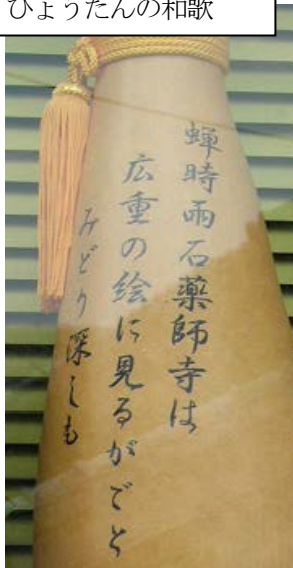 ひょうたんの和歌
蝉時雨石薬師寺は
広重の絵に見るがごと
みどり深しも